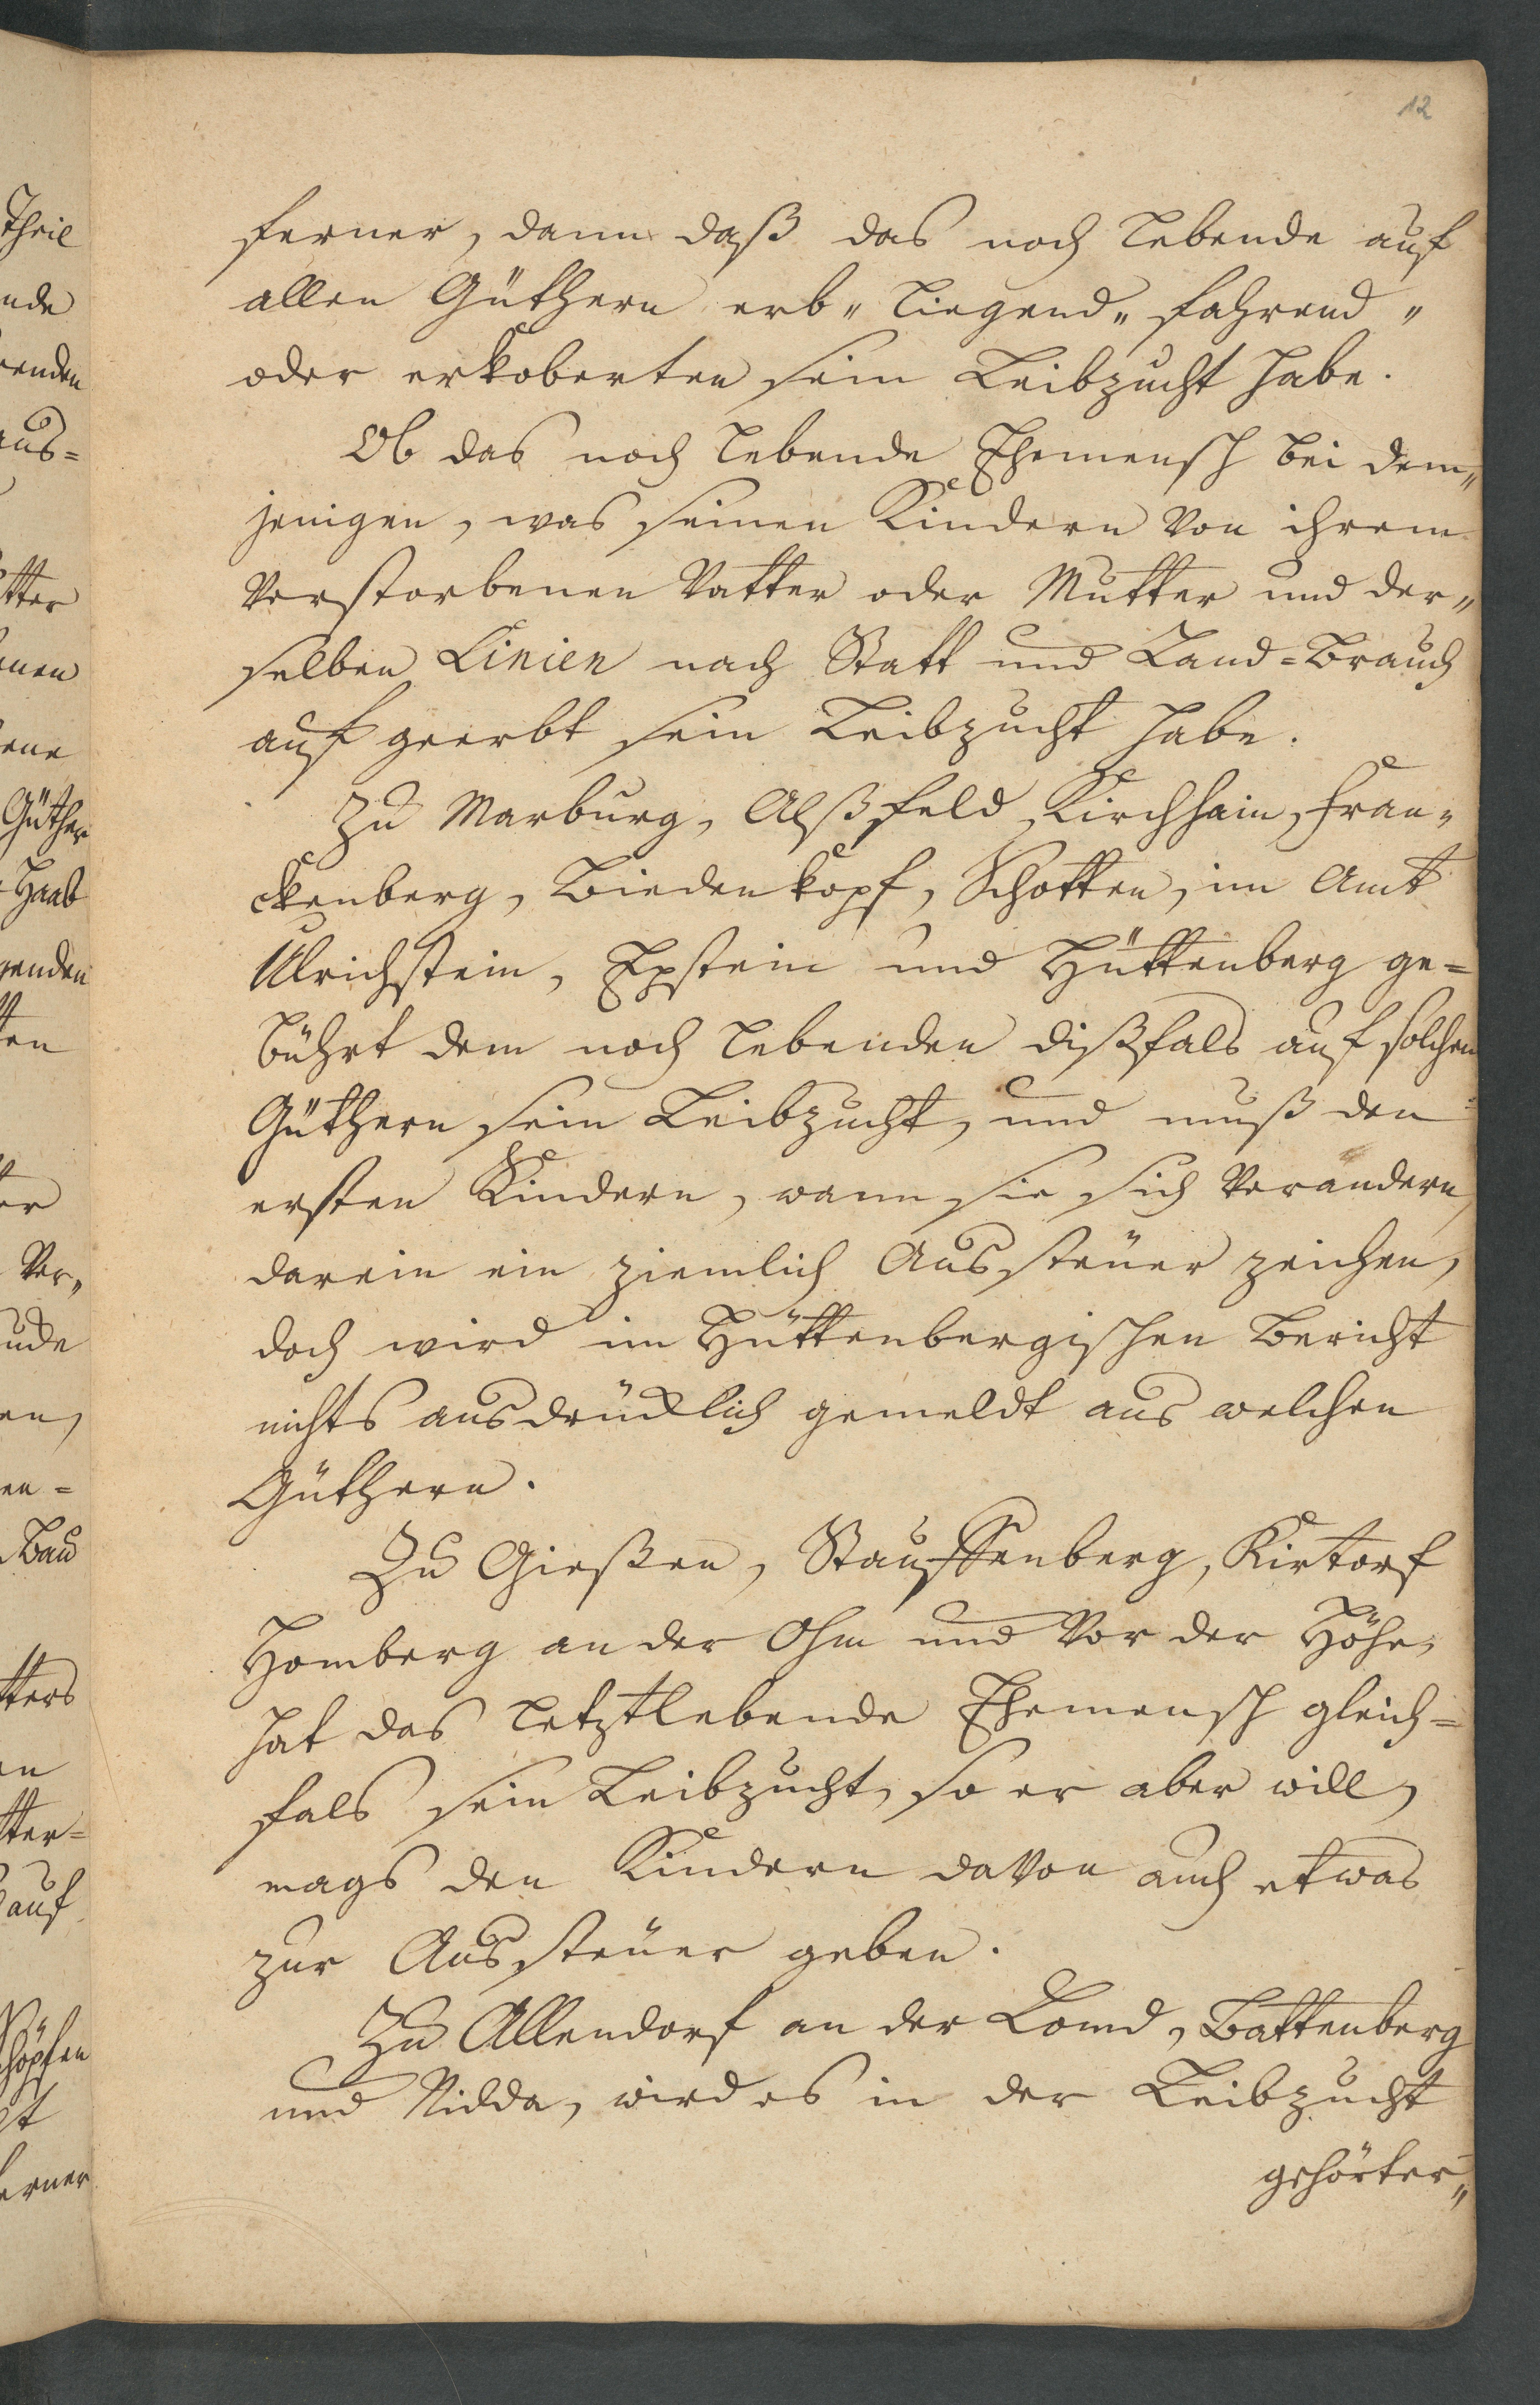 12
ferner, dann daß das noch lebende auf
allen Güthern erb„ liegend„ fahrend„
oder erkoberten sein Leibzucht habe.
Ob das noch lebende Ehemensch bei dem„
jenigen, was seinen Kindern von ihrem
verstorbenen Vatter oder Mutter und der„
selben Linien nach Statt und Land=Brauch
auf geerbt sein Leibzucht habe.
Zu Marburg, Alßfeld, Kirchhain, Fran„
ckenberg, Biedenkopf, Schotten, im Amt
Ulrichstein, Epstein und Hüttenberg ge=
bührt dem noch lebenden dißfals auf solchen
Güthern sein Leibzucht, und muß den
ersten Kindern, wann sie sich verändern,
darein ein ziemlich Aussteuer zeichen,
doch wird im Hüttenbergischen Bericht
nichts ausdrücklich gemeldt aus welchen
Güthern.
Zu Gießen, Stauffenberg, Kirtorf
Homberg an der Ohm und vor der Höhe,
hat das letztlebende Ehemensch gleich=
fals sein Leibzucht, so er aber will,
mags den Kindern davon auch etwas
zur Aussteuer geben.
Zu Allendorf an der Lomd, Battenberg
und Nidda, wird es in der Leibzucht
gehörter„